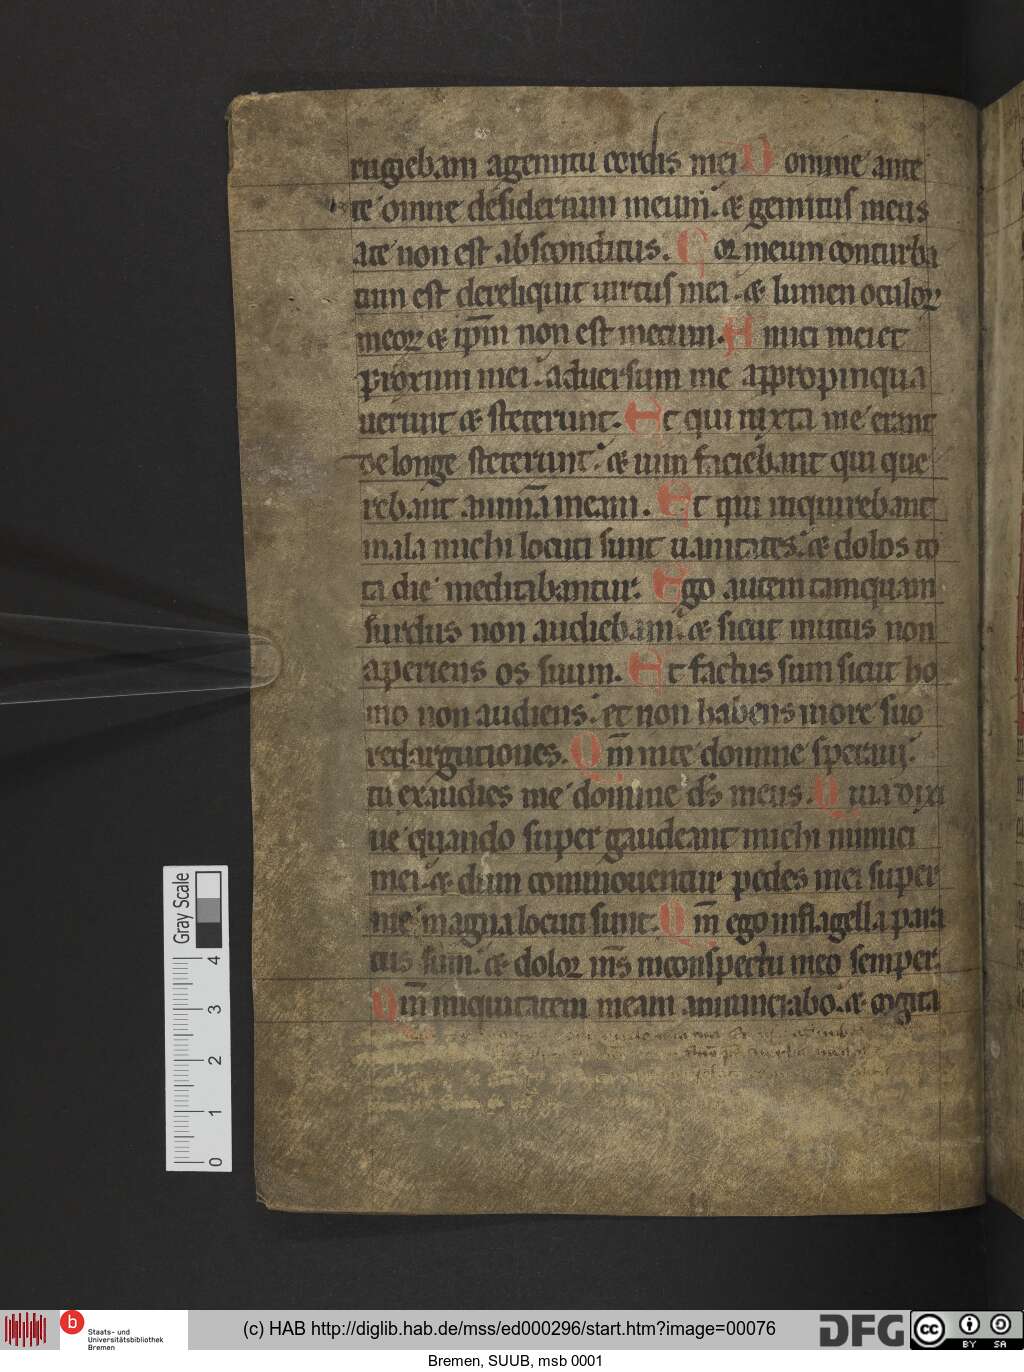 rugiebam agemitu cordis mei Domine ante
te omne desiderium meum. & gemitus meus
ate non est absconditus. Cor meum conturba
tum est dereliquit uirtus mei. & lumen oculoꝝ
meoꝝ & ip̄m non est mecum. Amici mei et
proximi mei. aduersum me appropinqua
uerunt & steterunt. Et qui iuxta me erant
delonge steterunt. & uim faciebant qui que
rebant anim̄a meam. Et qui inquirebant
mala michi locuti sunt uanitates. & dolos to
ta die meditabantur. Ego autem tamquam
surdus non audiebam. & sicut mutus non
aperiens os suum. Et factus sum sicut ho
mo non audiens. et non habens inore suo
redargutiones. Qm̄ inte domine speraui.
tu exaudies me domine ds̄ meus. Quia dixi
ne quando super gaudeant michi inimici
mei. & dum commouentur pedes mei super
me magna locuti sunt. Qm̄ ego inflagella para
tus sum. & dolor ms̄ inconspectu meo semper.
Qm̄ iniquitatem meam annunciabo. & cogita
Gray Scale
4
3
2
1
0
b
Staats- und
Universitätsbibliothek
Bremen
(c) HAB http://diglib.hab.de/mss/ed000296/start.htm?image=00076
DFG
cc BY SA
Bremen, SUUB, msb 0001